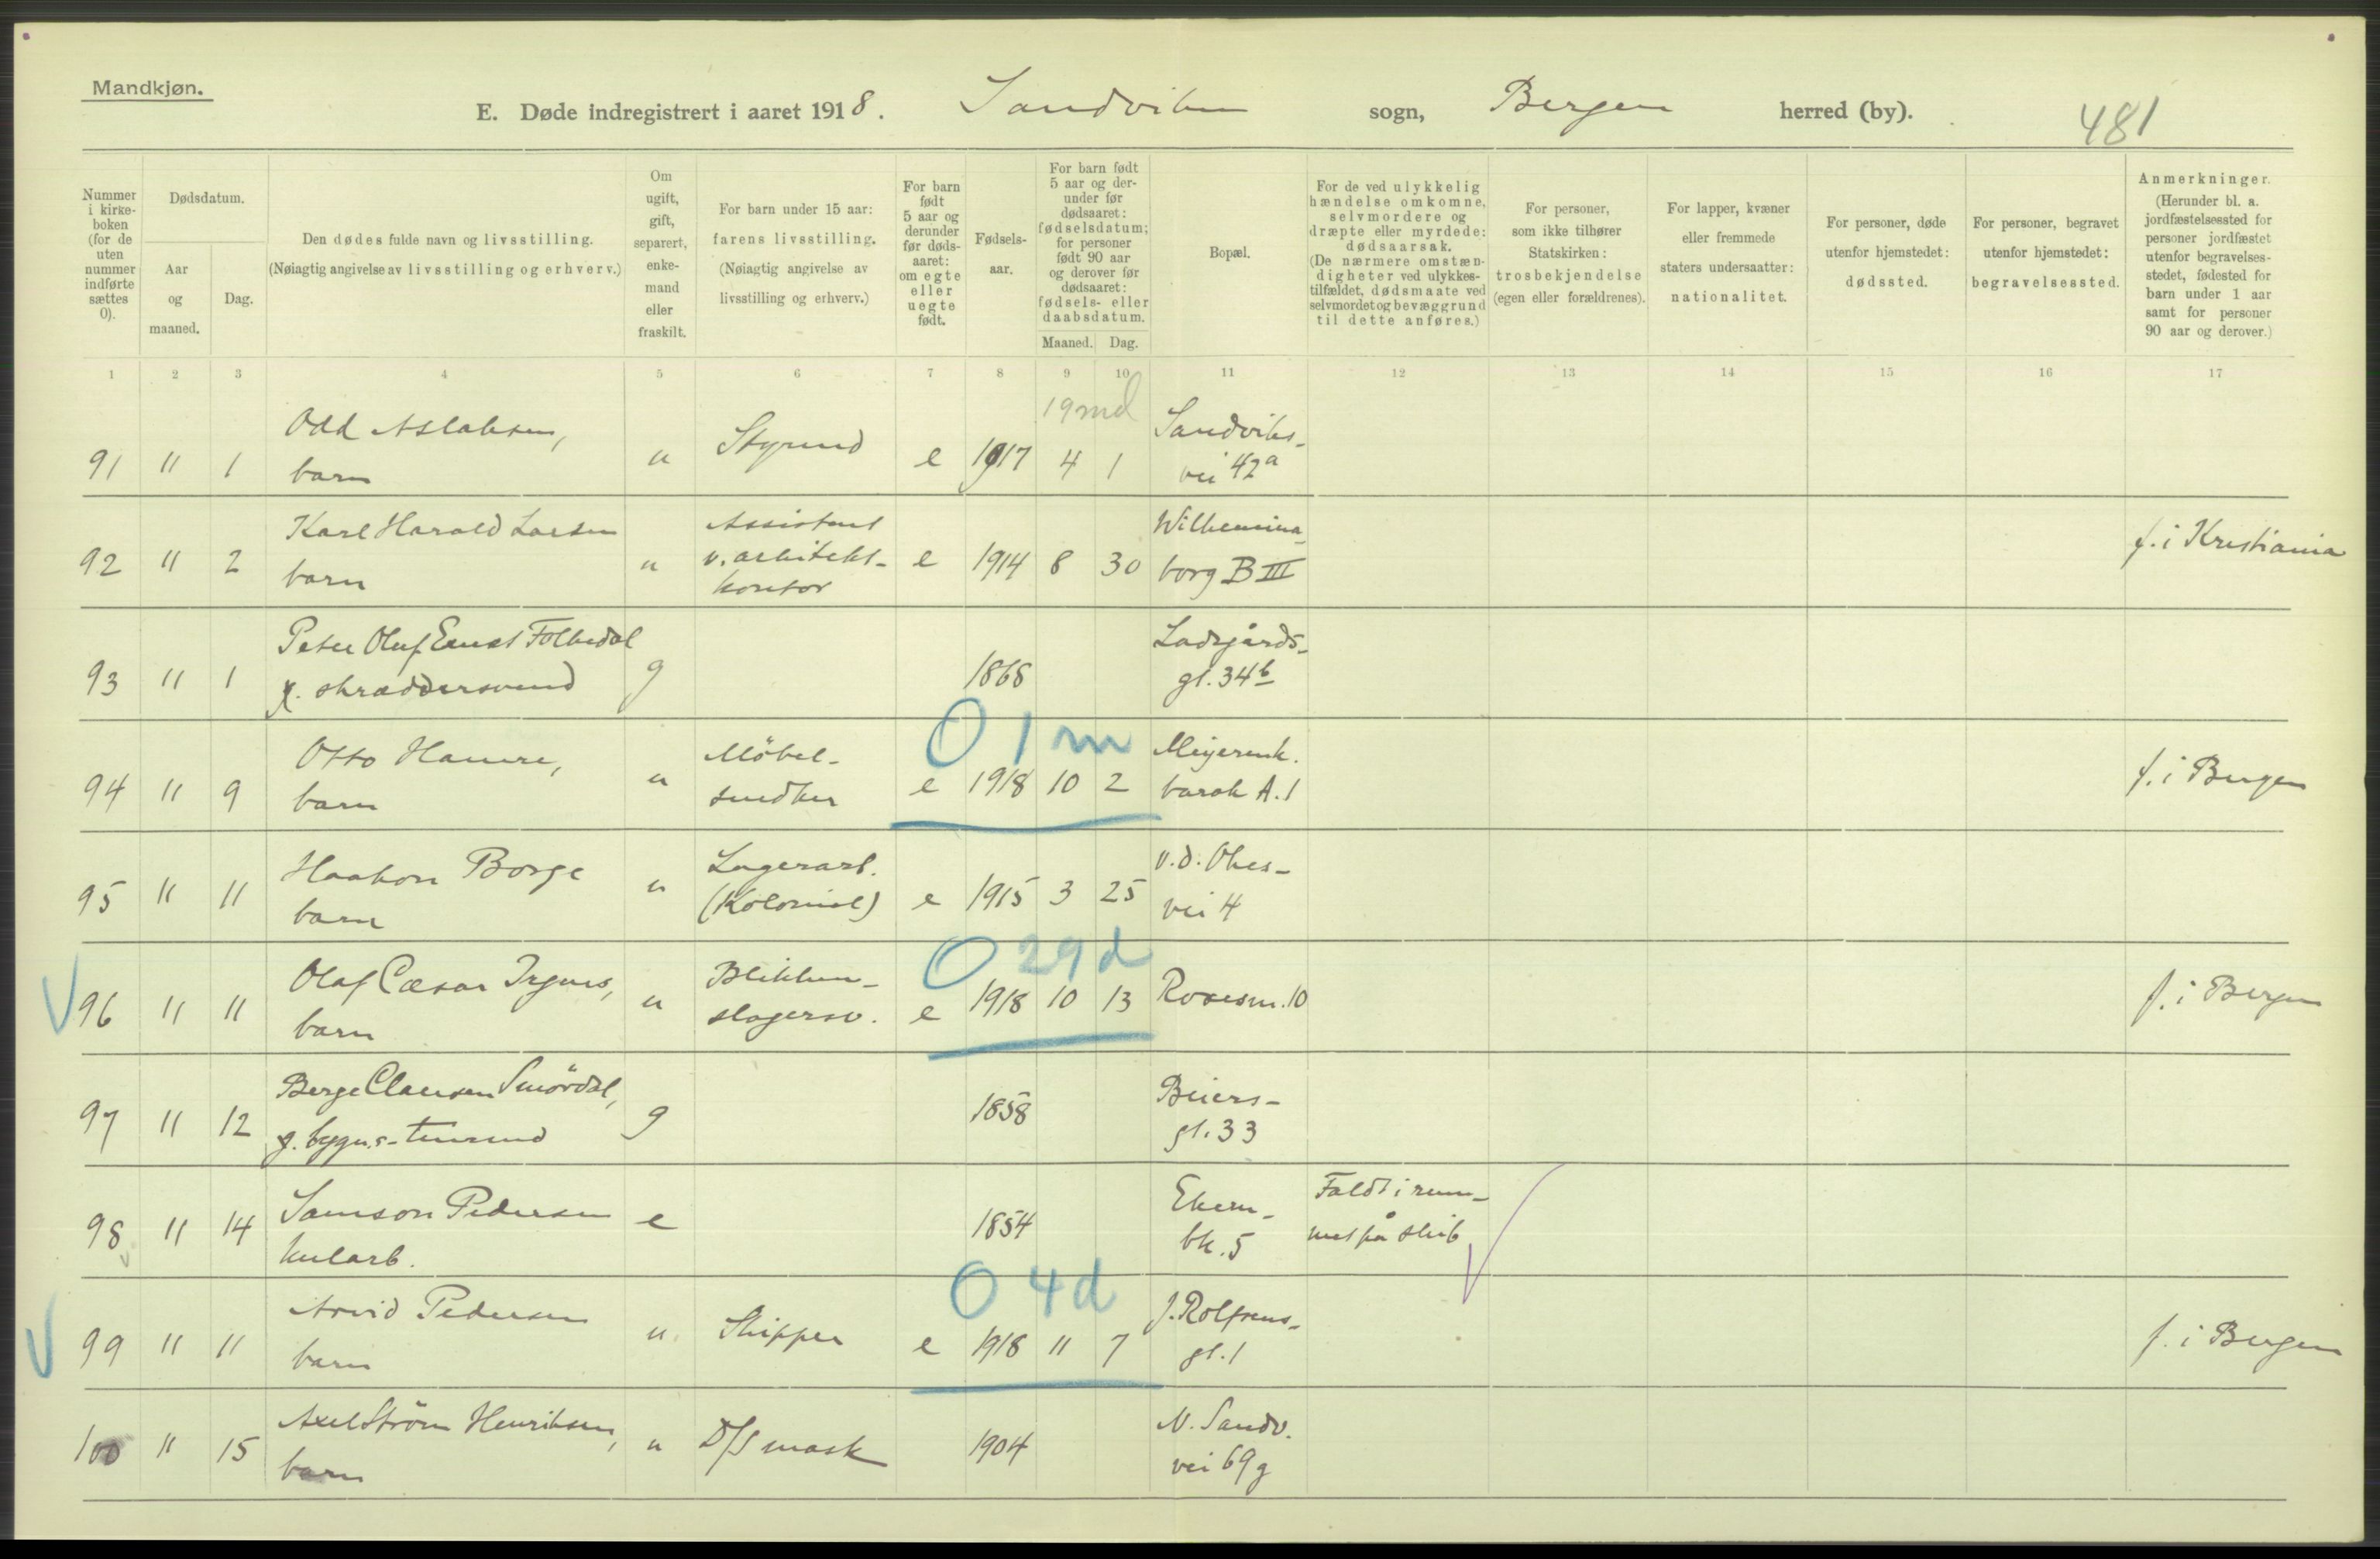 Mandkjøn.
E. Døde indregistrert i aaret 1918. Sandviken sogn, Bergen herred (by).
481
Nummer i kirke-boken (for de uten nummer indførte sættes 0).
Dødsdatum.
Aar og maaned.
Dag.
Den dødes fulde navn og livsstilling.
(Nøiagtig angivelse av livsstilling og erhverv.)
Om ugift, gift, separert, enke-mand eller fraskilt.
For barn under 15 aar: farens livsstilling.
(Nøiagtig angivelse av livsstilling og erhverv.)
For barn født 5 aar og derunder før døds-aaret: om egte eller uegte født.
Fødsels-aar.
For barn født 5 aar og der-under før dødsaaret: fødselsdatum; for personer født 90 aar og derover før dødsaaret: fødsels- eller daabsdatum.
Maaned. Dag.
Bopæl.
For de ved ulykkelig hændelse omkomne, selvmordere og dræpte eller myrdede: dødsaarsak.
(De nærmere omstæn-digheter ved ulykkes-tilfældet, dødsmaate ved selvmordet og bevæggrund til dette anføres.)
For personer, som ikke tilhører Statskirken: trosbekjendelse (egen eller forældrenes).
For lapper, kvæner eller fremmede staters undersaatter: nationalitet.
For personer, døde utenfor hjemstedet: dødssted.
For personer, begravet utenfor hjemstedet: begravelsessted.
Anmerkninger.
(Herunder bl. a. jordfæstelsessted for personer jordfæstet utenfor begravelses-stedet, fødested for barn under 1 aar samt for personer 90 aar og derover.)
1 2 3 4 5 6 7 8 9 10 11 12 13 14 15 16 17
19 md
Odd Aslaksen, Sandviks-
91 " 1 barn u Styrmd e 1917 4 1 vei 42a
Karl Harald Larsen Assistent Wilhemina-
92 " 2 barn u v. arkitekt- e 1914 8 30 borg B III f. i Kristiania
kontor
Peter Oluf Ernst Folkedal Ladegårds-
93 " 1 f. skræddersvend g 1868 gt. 34b
O 1 m
Otto Hamre, Möbel- Meyermk.
94 " 9 barn u snedker e 1918 10 2 barak A. 1 f. i Bergen
Haakon Borge Lagerarb. v. d. Ohes-
95 " 11 barn u (Kolonial) e 1915 3 25 vei 4
O 29 d
Olaf Cæsar Irgens, Blikken-
96 " 11 barn u slagersv. e 1918 10 13 Rosesm. 10 f. i Bergen
Berge Clausen Smördal, Beiers-
97 " 12 g 1858 gt. 33
Samson Pedersen Ekern- Faldt i rum-
98 " 14 kularb. e 1854 bk. 5 met på skib
O 4 d
Arvid Pedersen J. Rolfsens-
99 " 11 barn u Skipper e 1918 11 7 gt. 1 f. i Bergen
Axel Ström Henriksen, N. Sandv.
100 " 15 barn u D/S mask 1904 vei 69g